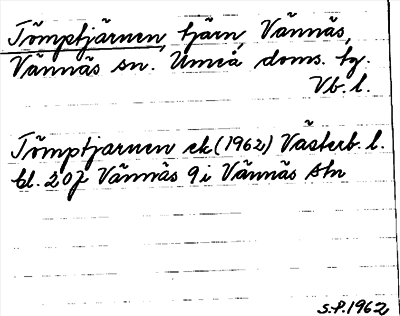 Tömptjärnen, tjärn, Vännäs,
Vännäs sn. Umeå doms. tg.
Vb. l.
Tömptjarnen ek (1962) Västerb. l.
bl. 207 Vännäs 9i Vännäs stn
S.P. 1962